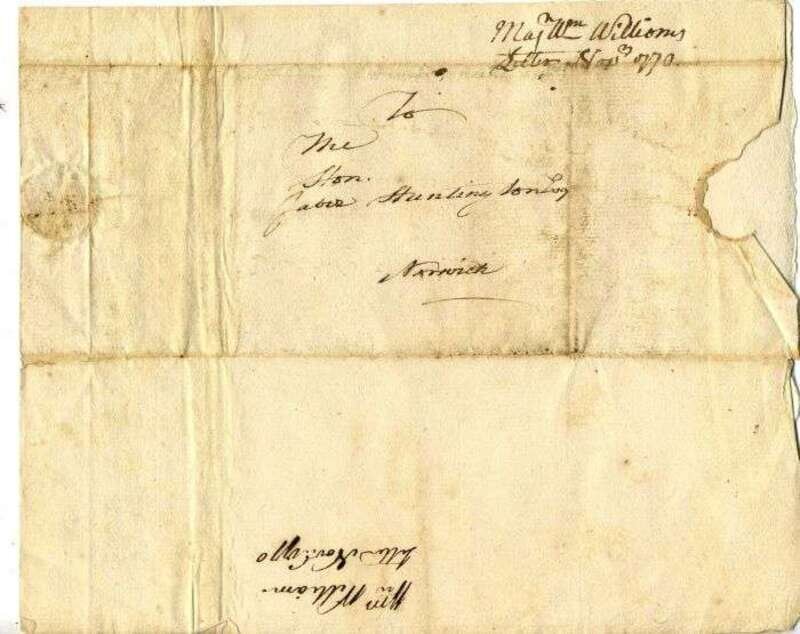 Majr Wm Williams
Letter Novr 1770
To
The
Hon.
Jabez Huntington Esq
Norwich
Wm William
Letter Nov. 1770